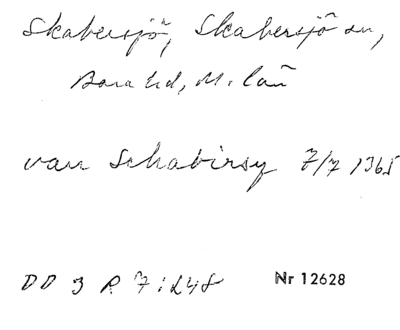 Skabersjö, Skabersjö sn,
Bara hd, M. län
van Schabirsy 7/7 1365
DD 3 R 7:248 Nr 12628